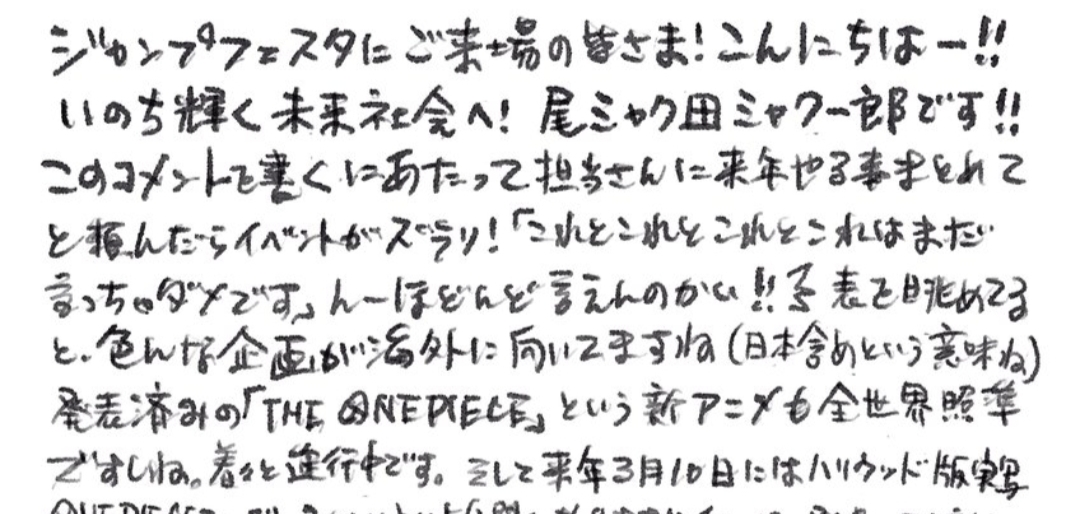 ジャンプフェスタにご来場の皆さま!こんにちはー!!
いのち輝く未来社会へ! 尾ミャク田ミャクー郎です!!
このコメントを書くにあたって担当さんに来年やる事まとめて
と頼んだらイベントがズラリ!「これとこれとこれとこれはまだ
言っちゃダメです」んーほどんど言えんのかい!!予表を眺めてる
と、色んな企画が海外に向いてますね(日本含めという意味ね)
発表済みの「THE ONE PIECE」という新アニメも全世界照準
ですしね。着々と進行中です。そして来年3月10日にはハリウッド版実写
ONE PIECE